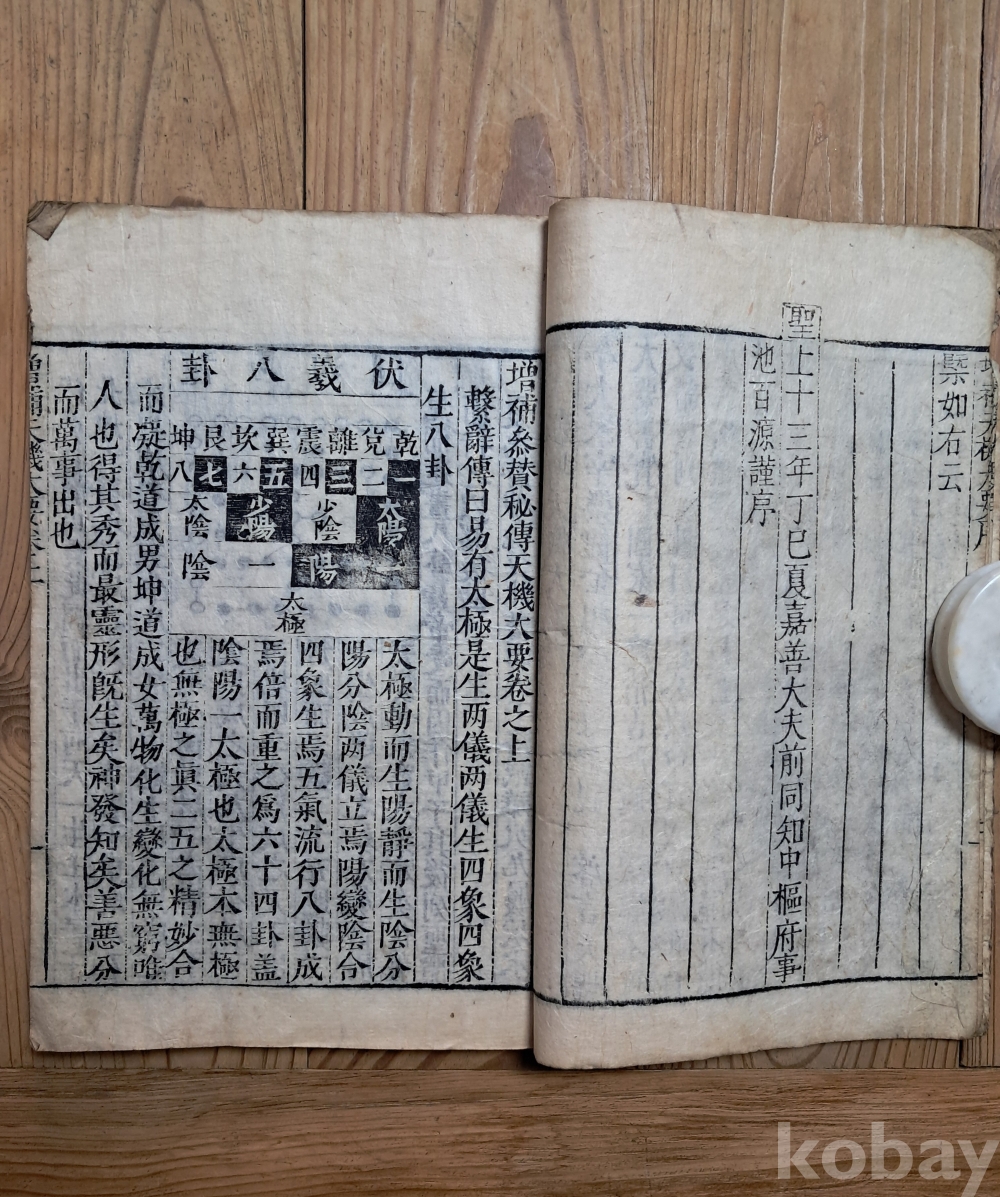 槩如右云
聖上十三年丁巳夏嘉善大夫前同知中樞府事
池百源謹序
增補叅賛秘傳天機大要卷之上
繫辭傳曰易有太極是生两儀两儀生四象四象
生八卦
伏羲八卦
乾兌離震巽坎艮坤
一二三四五六七八
太陽 少陰 少陽 太陰
陽 陰
太極
太極動而生陽靜而生陰分
陽分陰两儀立焉陽變陰合
四象生焉五氣流行八卦成
焉倍而重之爲六十四卦盖
陰陽一太極也太極本無極
也無極之眞二五之精妙合
而凝乾道成男坤道成女萬物化生變化無窮唯
人也得其秀而最靈形旣生矣神發知矣善惡分
而萬事出也
kobay